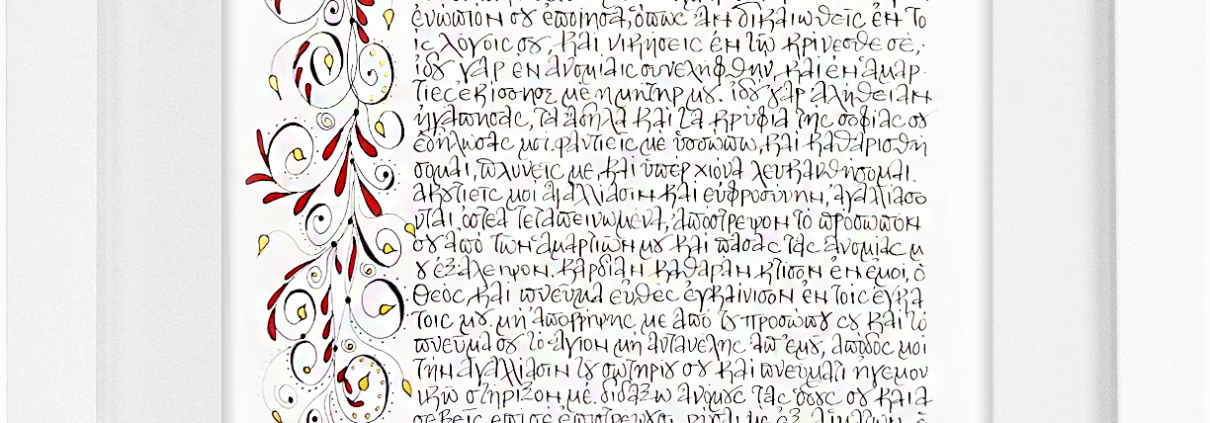 ἐνώπιον σȣ ἐποίησα, ὅπως ἂν δικαιωθεῖς ἐν το
ῖς λόγοις σȣ, καὶ νικήσεις ἐν τῷ κρίνεσθε σέ,
ἰδȣ γὰρ ἐν ἀνομίαις συνελήφθην, καὶ ἐν ἁμαρ
τίες ἐκίσσησε με ἡ μήτηρ μȣ. ἰδȣ γὰρ ἀλήθειαν
ἠγάπησας, τὰ ἄδηλα καὶ τὰ κρύφια τῆς σοφίας σȣ
ἐδήλωσας μοι. ραντιεῖς με ὑσσώπω, καὶ καθαρισθή
σομαι, πλυνεῖς με, καὶ ὑπὲρ χιόνα λευκανθήσομαι.
ἀκȣτιεῖς μοι ἀγαλλίασιν καὶ εὐφροσύνην, ἀγαλλιάσο
νται ὀστέα τεταπεινωμένα, ἀπόστρεψον τὸ πρόσωπόν
σȣ ἀπὸ τῶν ἁμαρτιῶν μȣ καὶ πάσας τὰς ἀνομίας μ
ȣ ἐξάλειψον. καρδίαν καθαρὰν κτίσον ἐν ἐμοί, ὁ
Θεὸς, καὶ πνεῦμα εὐθὲς ἐγκαίνισον ἐν τοῖς ἐγκά
τοις μȣ. μὴ ἀπορρίψης με ἀπὸ τȣ προσώπȣ σȣ καὶ τὸ
πνεῦμα σȣ τὸ ἅγιον μὴ ἀντανέλης ἀπ' ἐμȣ, ἀπόδος μοι
τὴν ἀγαλλίασιν τȣ σωτηρίȣ σȣ καὶ πνεύματι ἡγεμον
ικῷ στήριξον με. διδάξω ἀνόμȣς τὰς ὁδȣς σȣ καὶ ἀ
σεβεῖς ἐπὶ σὲ ἐπιστρέψȣσι. ῥῦσαι με ἐξ αἱμάτων, ὁ